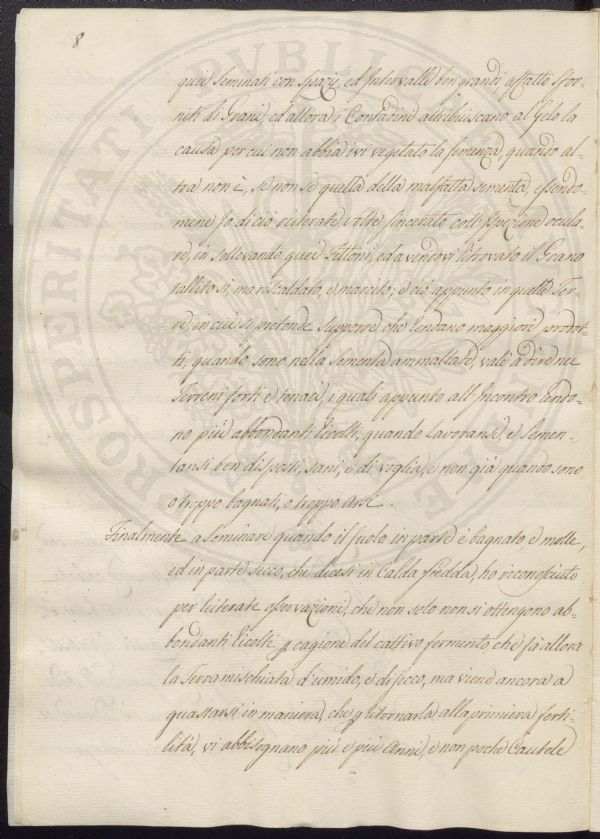 8
quei Seminati con spazj, ed Intervalli ben grandi affatto sfor-
niti di Grani, ed allora i Contadini attribuiscano al Gelo la
causa per cui non abbia ivi vegetato la semenza, quando al-
tra non è, se non se quella della malfatta sementa, essendo-
mene Io di ciò reiterate volte sincerato coll' Ispezione ocula-
re, in sollevando quei Fittoni, ed avendovi ritrovato il Grano
tallito sì, ma riscaldato, e marcito, e ciò appunto in quelle Ter-
re, in cui si pretende supporre che rendano maggiori prodot-
ti, quando sono nella sementa ammaltate, vale a dire nei
Terreni forti e tenaci, i quali appunto all' Incontro rendo-
no più abbondanti ricolti, quando lavoransi, e semen-
tansi ben disposti, sani, e di voglia, e non già quando sono
o troppo bagnati, o troppo Arsi.
Finalmente a seminare quando il suolo in parte è bagnato, e molle,
ed in parte secco, che dicesi in Calda fredda, ho riconosciuto
per reiterate osservazioni, che non solo non si ottengono ab-
bondanti ricolti p cagione del cattivo fermento, che fà allora
la Terra mischiata d'umido, e di secco, ma viene ancora a
guastarsi in maniera, che p ritornarla alla primiera ferti-
lità, vi abbisognano più e più Anni, e non poche Cautele
PROSPERITATI PUBLICAE